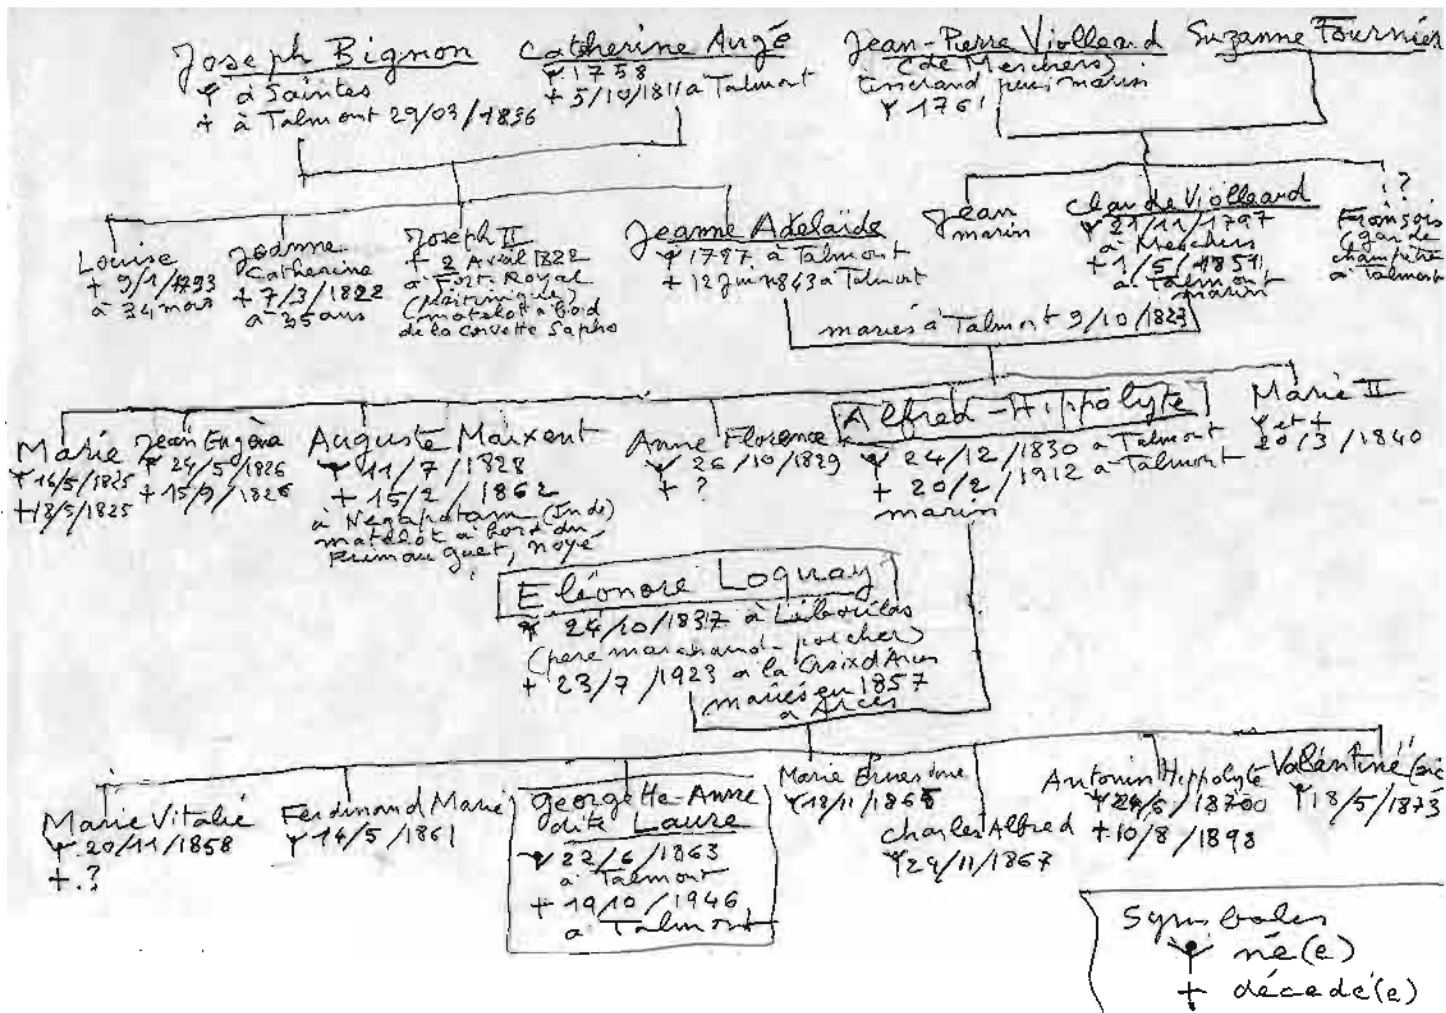 Joseph Bignon
Ψ à Saintes
+ à Talmont 29/03/1836
Catherine Augé
Ψ 1758
+ 5/10/1811 à Talmont
Jean-Pierre Violleard
(de Meschers)
tisserand puis marin
Ψ 1761
Suzanne Fournier
Louise
+ 9/1/1793
à 34 mois
Jeanne
Catherine
+ 7/3/1822
à 35 ans
Joseph II
+ 2 Avril 1822
à Fort-Royal
(Martinique)
(matelot à bord
de la corvette Sapho
Jeanne Adelaïde
Ψ 1797 à Talmont
+ 12 Juin 1843 à Talmont
Jean
marin
Claude Violleard
Ψ 21/11/1797
à Meschers
+ 1/5/1851
à Talmont
marin
?
François
(garde
champêtre
à Talmont
mariés à Talmont 9/10/1823
Marie
Ψ 16/5/1825
+ 18/5/1825
Jean Eugène
Ψ 24/5/1826
+ 15/9/1826
Auguste Maixent
Ψ 11/7/1828
+ 15/2/1862
à Negapatam (Inde)
matelot à bord du
Primauguet, noyé
Anne Florence
Ψ 26/10/1829
+ ?
Alfred-Hippolyte
Ψ 24/12/1830 à Talmont
+ 20/2/1912 à Talmont
marin
Marie II
Ψ et +
20/3/1840
Eléonore Loquay
Ψ 24/10/1837 à Liboulas
(père marchand-porcher)
+ 23/7/1923 à la Croix d'Arces
mariés en 1857
à Arces
Marie Vitalie
Ψ 20/11/1858
+ ?
Ferdinand Marie
Ψ 14/5/1861
Georgette-Anne
dite Laure
Ψ 22/6/1863
à Talmont
+ 19/10/1946
à Talmont
Marie Ernestine
Ψ 18/11/1865
Charles Alfred
Ψ 29/11/1867
Antonin Hippolyte
Ψ 24/6/18700
+ 10/8/1898
Valentine (sic
Ψ 18/5/1873
Symboles
Ψ né(e)
+ décedé(e)